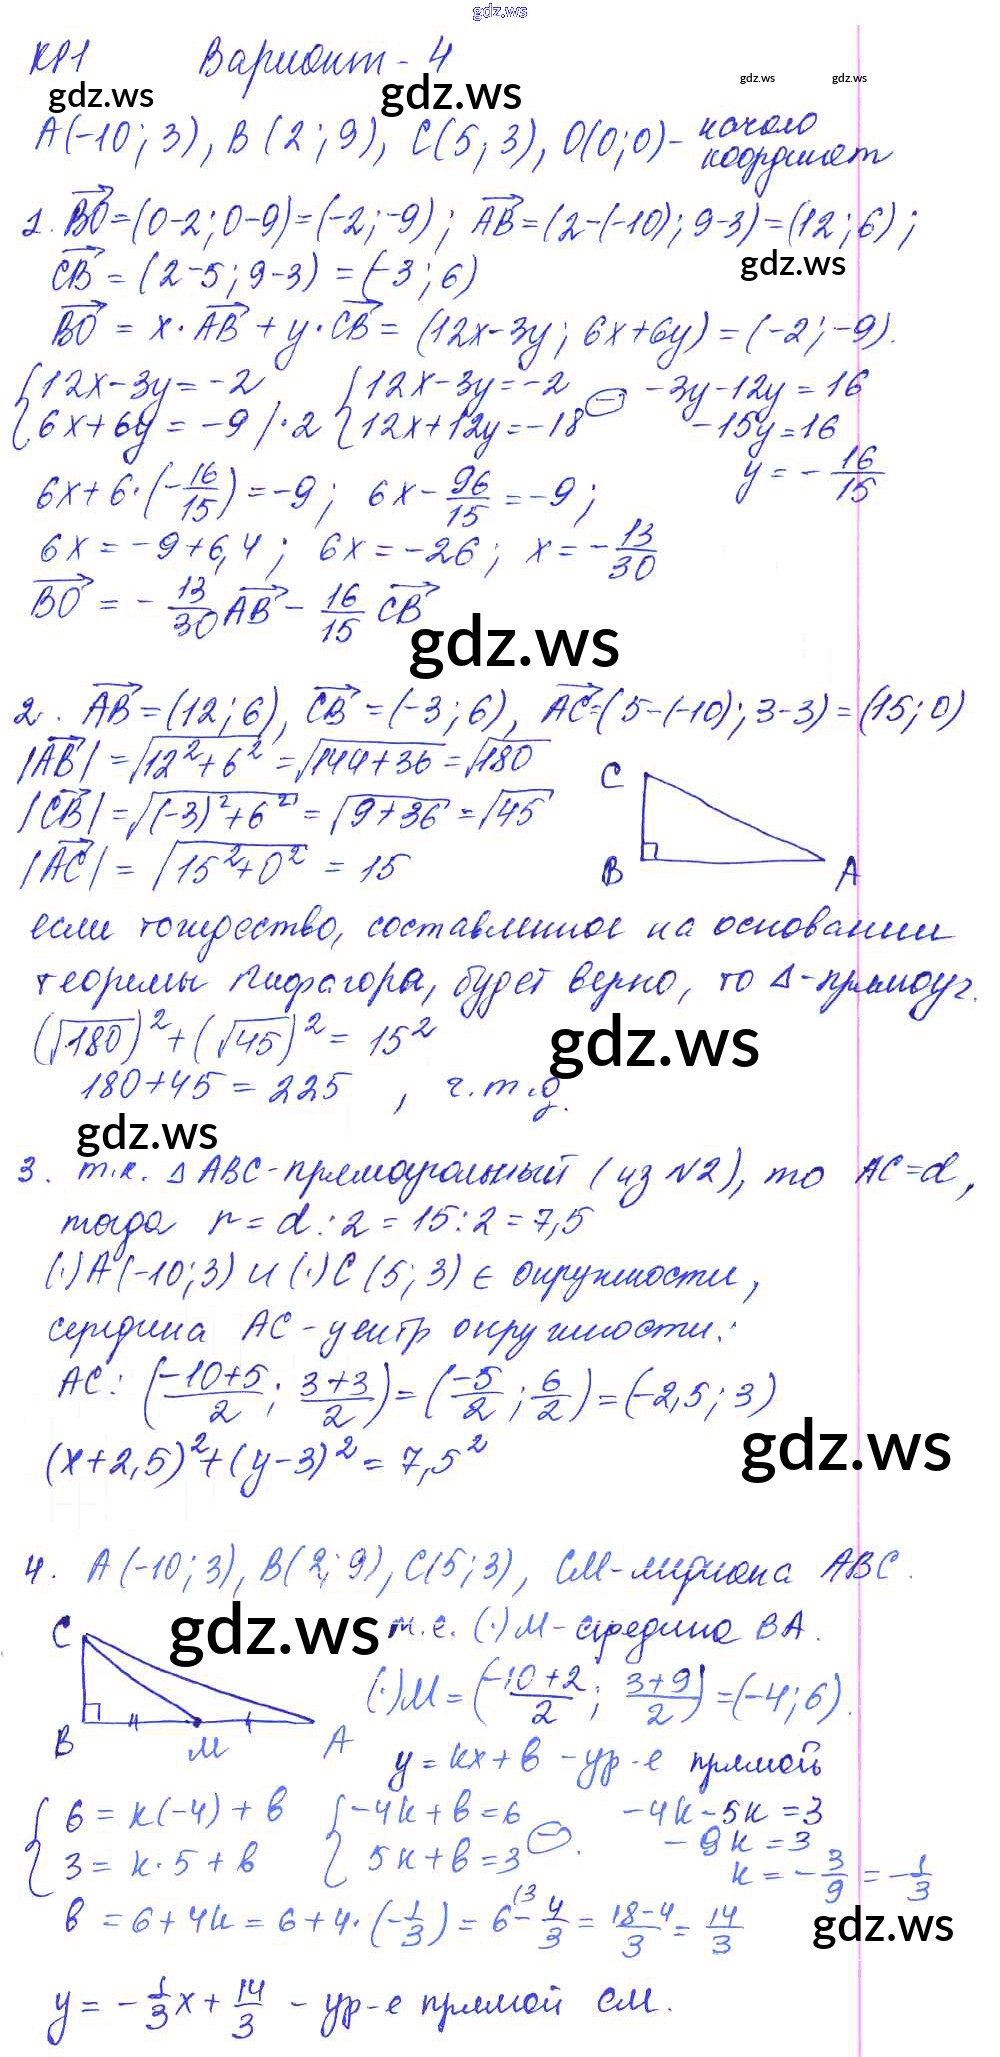 gdz.ws
КР1 Вариант - 4
gdz.ws gdz.ws gdz.ws gdz.ws
A(-10; 3), B(2; 9), C(5; 3), O(0; 0) - начало
координат
1. BO = (0-2; 0-9) = (-2; -9); AB = (2-(-10); 9-3) = (12; 6);
gdz.ws
CB = (2-5; 9-3) = (-3; 6)
BO = x·AB + y·CB = (12x-3y; 6x+6y) = (-2; -9).
{12x-3y=-2 {12x-3y=-2 - -3y-12y=16
{6x+6y=-9 |·2 {12x+12y=-18 -15y=16
y = -16/15
6x+6·(-16/15) = -9; 6x - 96/15 = -9;
6x = -9+6,4; 6x = -26; x = -13/30
BO = -13/30 AB - 16/15 CB
gdz.ws
2. AB = (12; 6), CB = (-3; 6), AC = (5-(-10); 3-3) = (15; 0)
|AB| = √12²+6² = √144+36 = √180
|CB| = √(-3)²+6² = √9+36 = √45
|AC| = √15²+0² = 15
C
B A
если тождество, составленное на основании
теоремы Пифагора, будет верно, то Δ-прямоуг.
(√180)²+(√45)² = 15²
gdz.ws
180+45 = 225, ч.т.д.
gdz.ws
3. т.к. Δ ABC-прямоугольный (из №2), то AC=d,
тогда r = d : 2 = 15 : 2 = 7,5
(·)A(-10; 3) и (·)C(5; 3) ∈ окружности,
середина AC - центр окружности:
AC: (-10+5/2; 3+3/2) = (-5/2; 6/2) = (-2,5; 3)
gdz.ws
(x+2,5)²+(y-3)² = 7,5²
4. A(-10; 3), B(2; 9), C(5; 3), CM-медиана ABC.
gdz.ws
C т.е. (·)M - середина BA.
(·)M = (-10+2/2; 3+9/2) = (-4; 6).
B M A
y = kx+b - ур-е прямой
{6 = k(-4)+b {-4k+b=6 - -4k-5k=3
{3 = k·5+b {5k+b=3. -9k=3
k = -3/9 = -1/3
b = 6+4k = 6+4·(-1/3) = 6(3 - 4/3 = 18-4/3 = 14/3
gdz.ws
y = -1/3x + 14/3 - ур-е прямой CM.